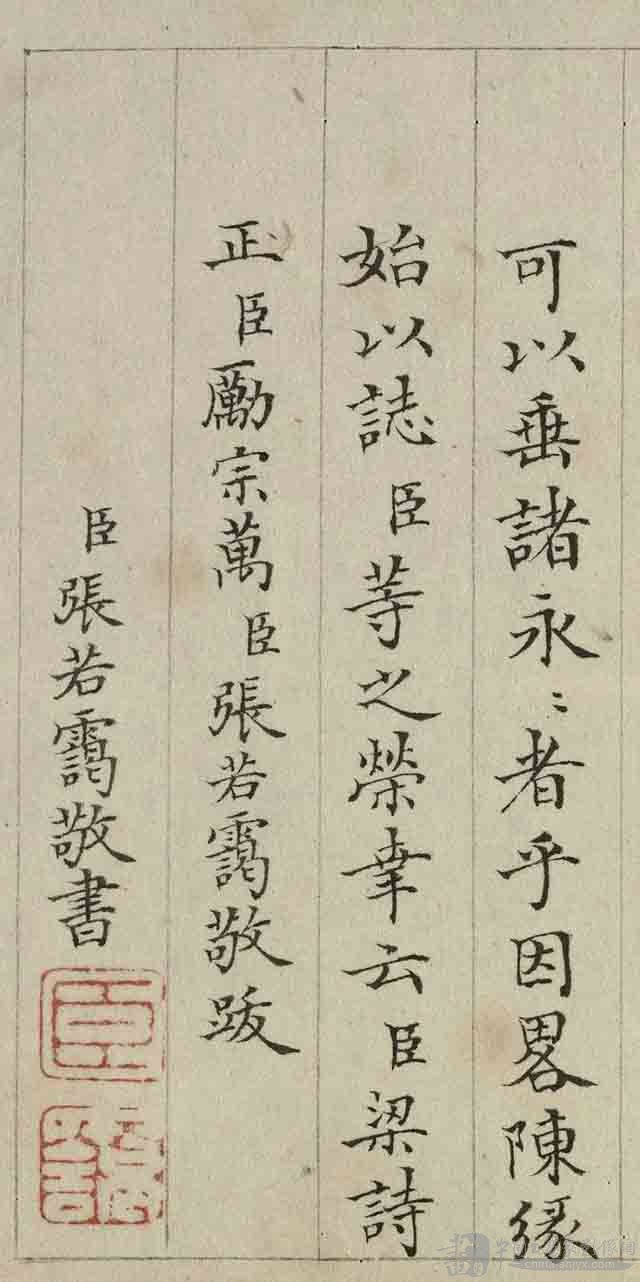 可以垂諸永〻者乎因畧陳緣
始以誌臣等之榮幸云臣梁詩
正臣勵宗萬臣張若靄敬跋
臣張若靄敬書
臣
china-shjyx.com